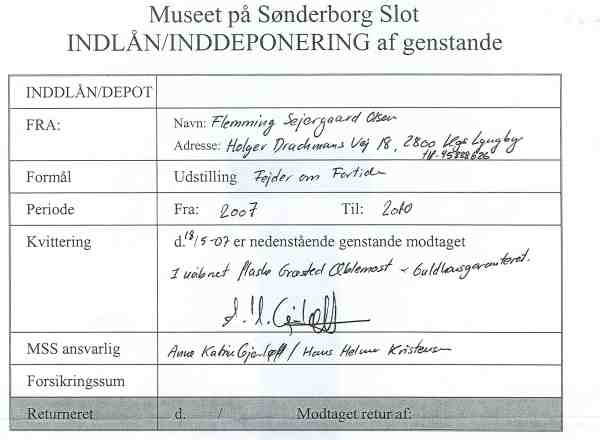 Museet på Sønderborg Slot
INDLÅN/INDDEPONERING af genstande
INDDLÅN/DEPOT
FRA: Navn: Flemming Sejergaard Olsen
Adresse: Holger Drachmans Vej 18, 2800 Kgs Lyngby
tlf. 45888626
Formål Udstilling Fejder om Fortiden
Periode Fra: 2007 Til: 2010
Kvittering d. 18/5-07 er nedenstående genstande modtaget
1 uåbnet flaske Græsted Æblemost - Guldhornsgaranteret.
MSS ansvarlig Anne Katrine Gjerløff / Hans Helmer Kristensen
Forsikringssum
Returneret d. / Modtaget retur af: